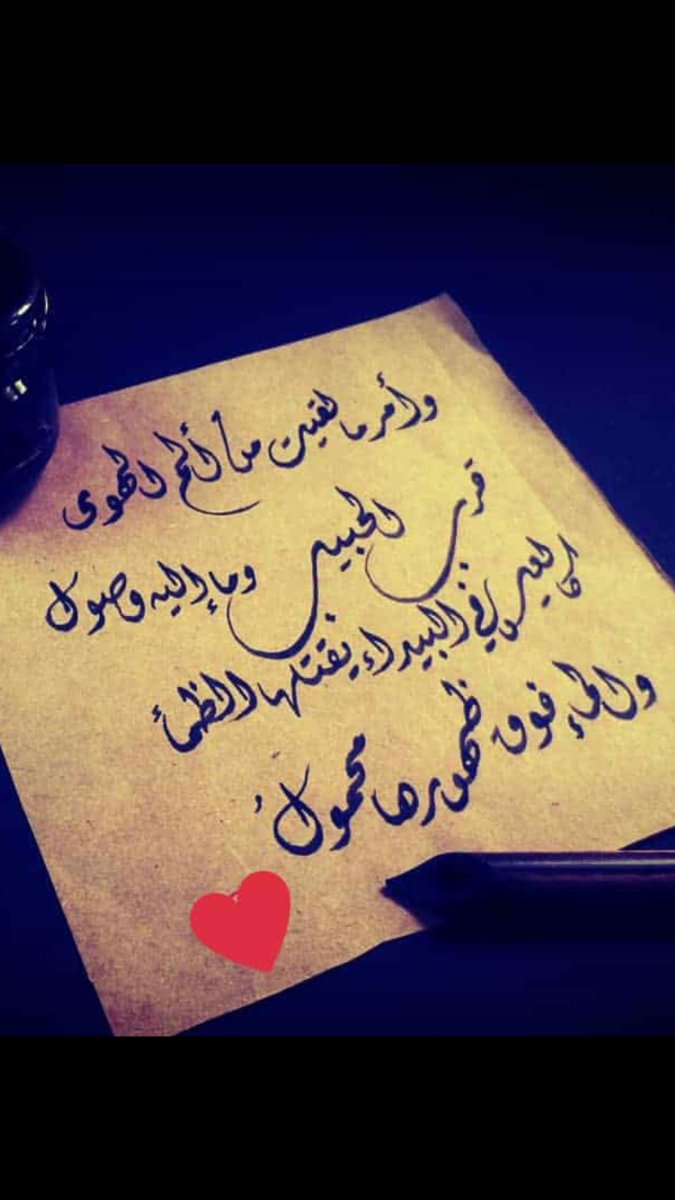 وأمر ما لقيت من ألم الهوى
قرب الحبيب وما إليه وصول
كالعيس في البيداء يقتلها الظمأ
والماء فوق ظهورها محمولُ